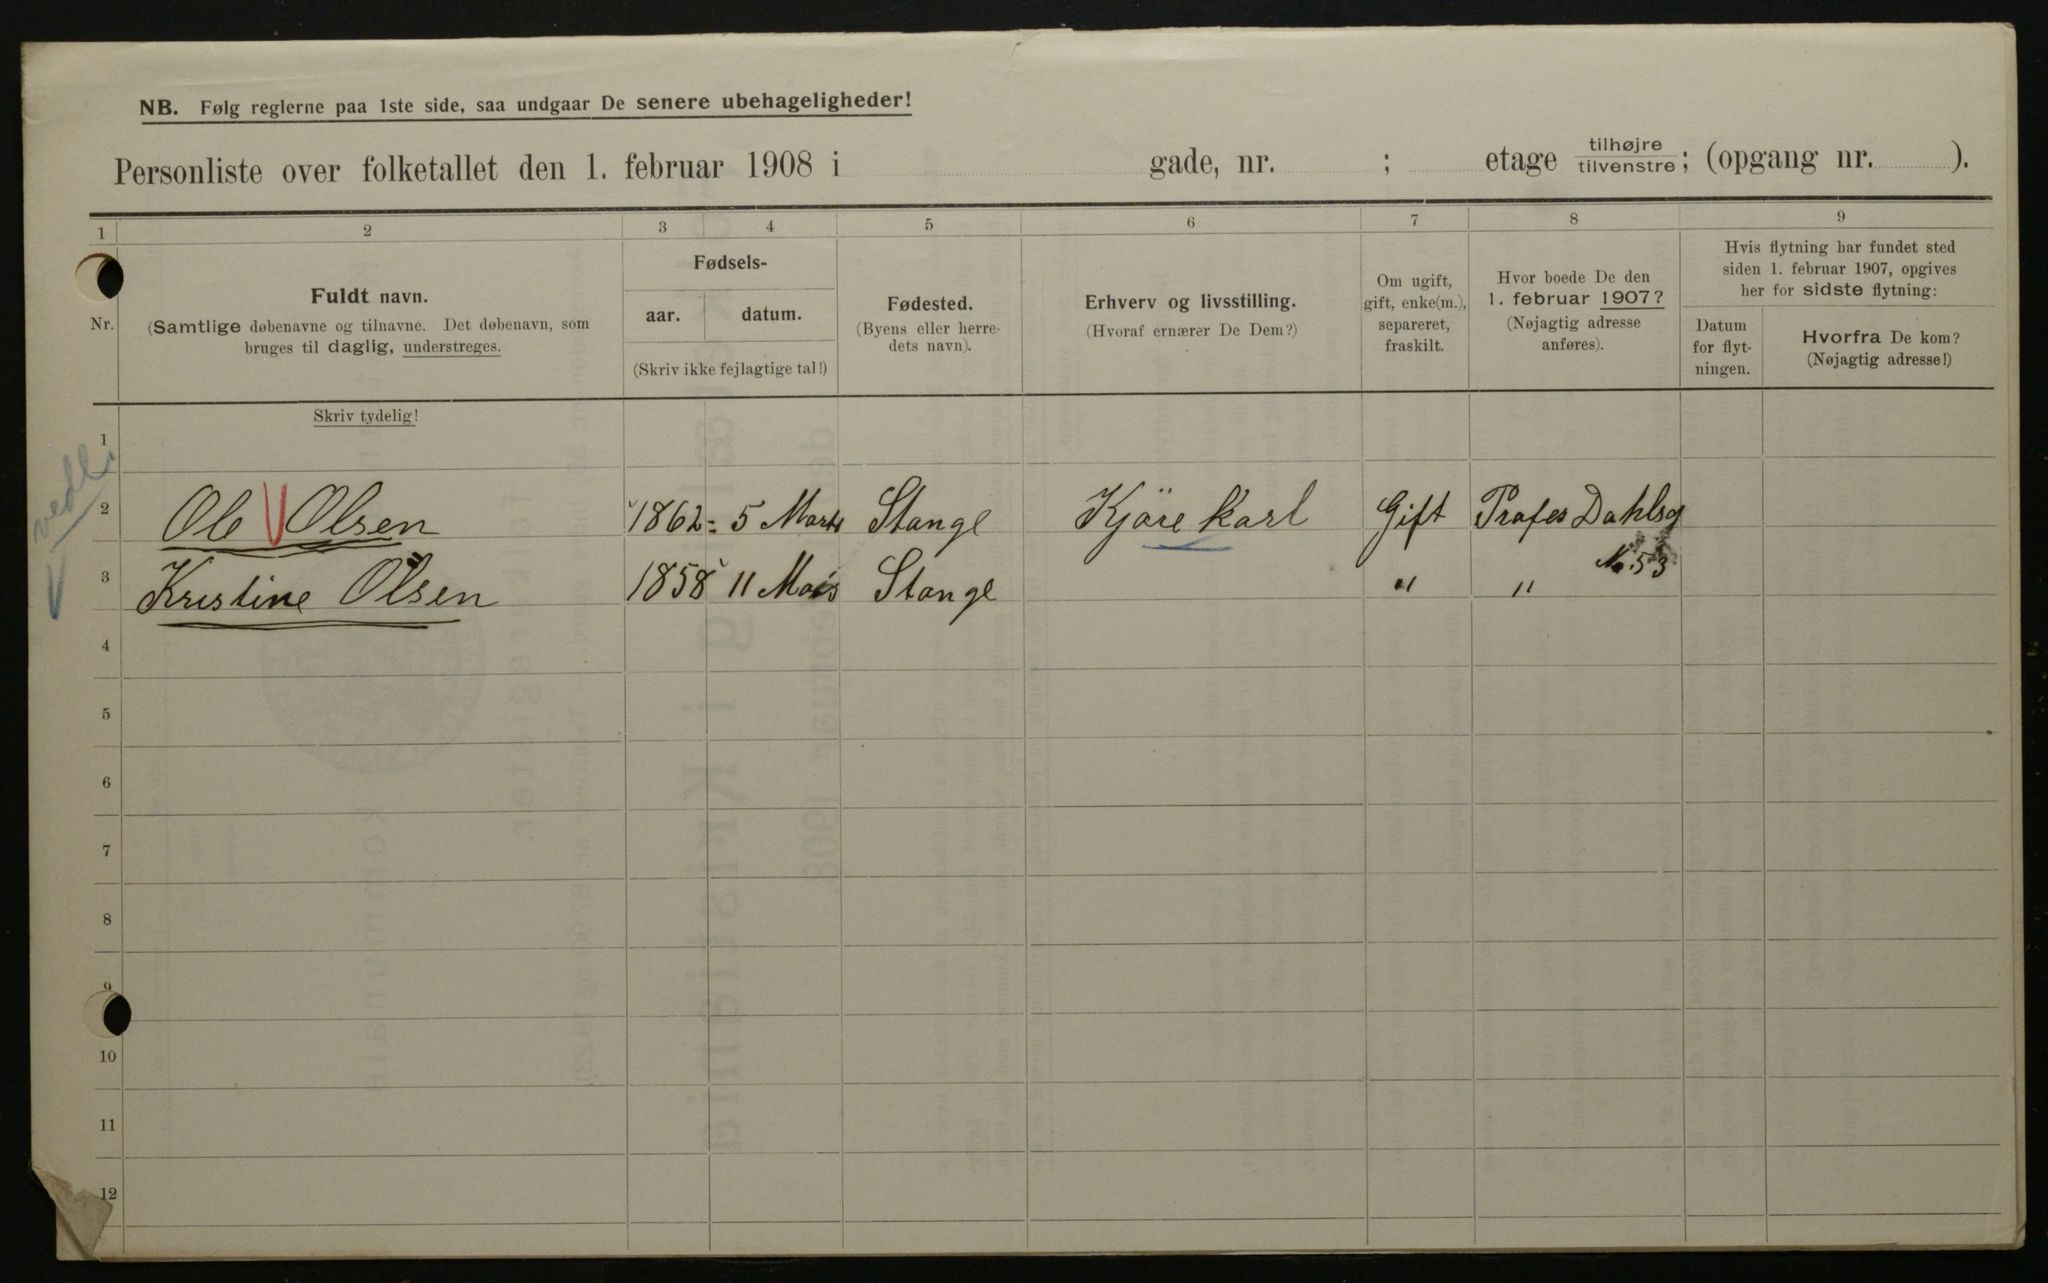 NB. Følg reglerne paa 1ste side, saa undgaar De senere ubehageligheder!
Personliste over folketallet den 1. februar 1908 i gade, nr. ; etage tilhøjre tilvenstre; (opgang nr. ).
1 2 3 4 5 6 7 8 9
Nr.
Fuldt navn.
(Samtlige døbenavne og tilnavne. Det døbenavn, som
bruges til daglig, understreges.
Fødsels-
aar. datum.
(Skriv ikke fejlagtige tal!)
Fødested.
(Byens eller herre-
dets navn).
Erhverv og livsstilling.
(Hvoraf ernærer De Dem?)
Om ugift,
gift, enke(m.),
separeret,
fraskilt.
Hvor boede De den
1. februar 1907?
(Nøjagtig adresse
anføres).
Hvis flytning har fundet sted
siden 1. februar 1907, opgives
her for sidste flytning:
Datum
for flyt-
ningen.
Hvorfra De kom?
(Nøjagtig adresse!)
Skriv tydelig!
1
2 Ole Olsen 1862 = 5 Marts Stange Kjöre karl Gift Profes Dahlsg
No. 53
3 Kristine Olsen 1858 11 Stange " "
4
5
6
7
8
9
10
11
12